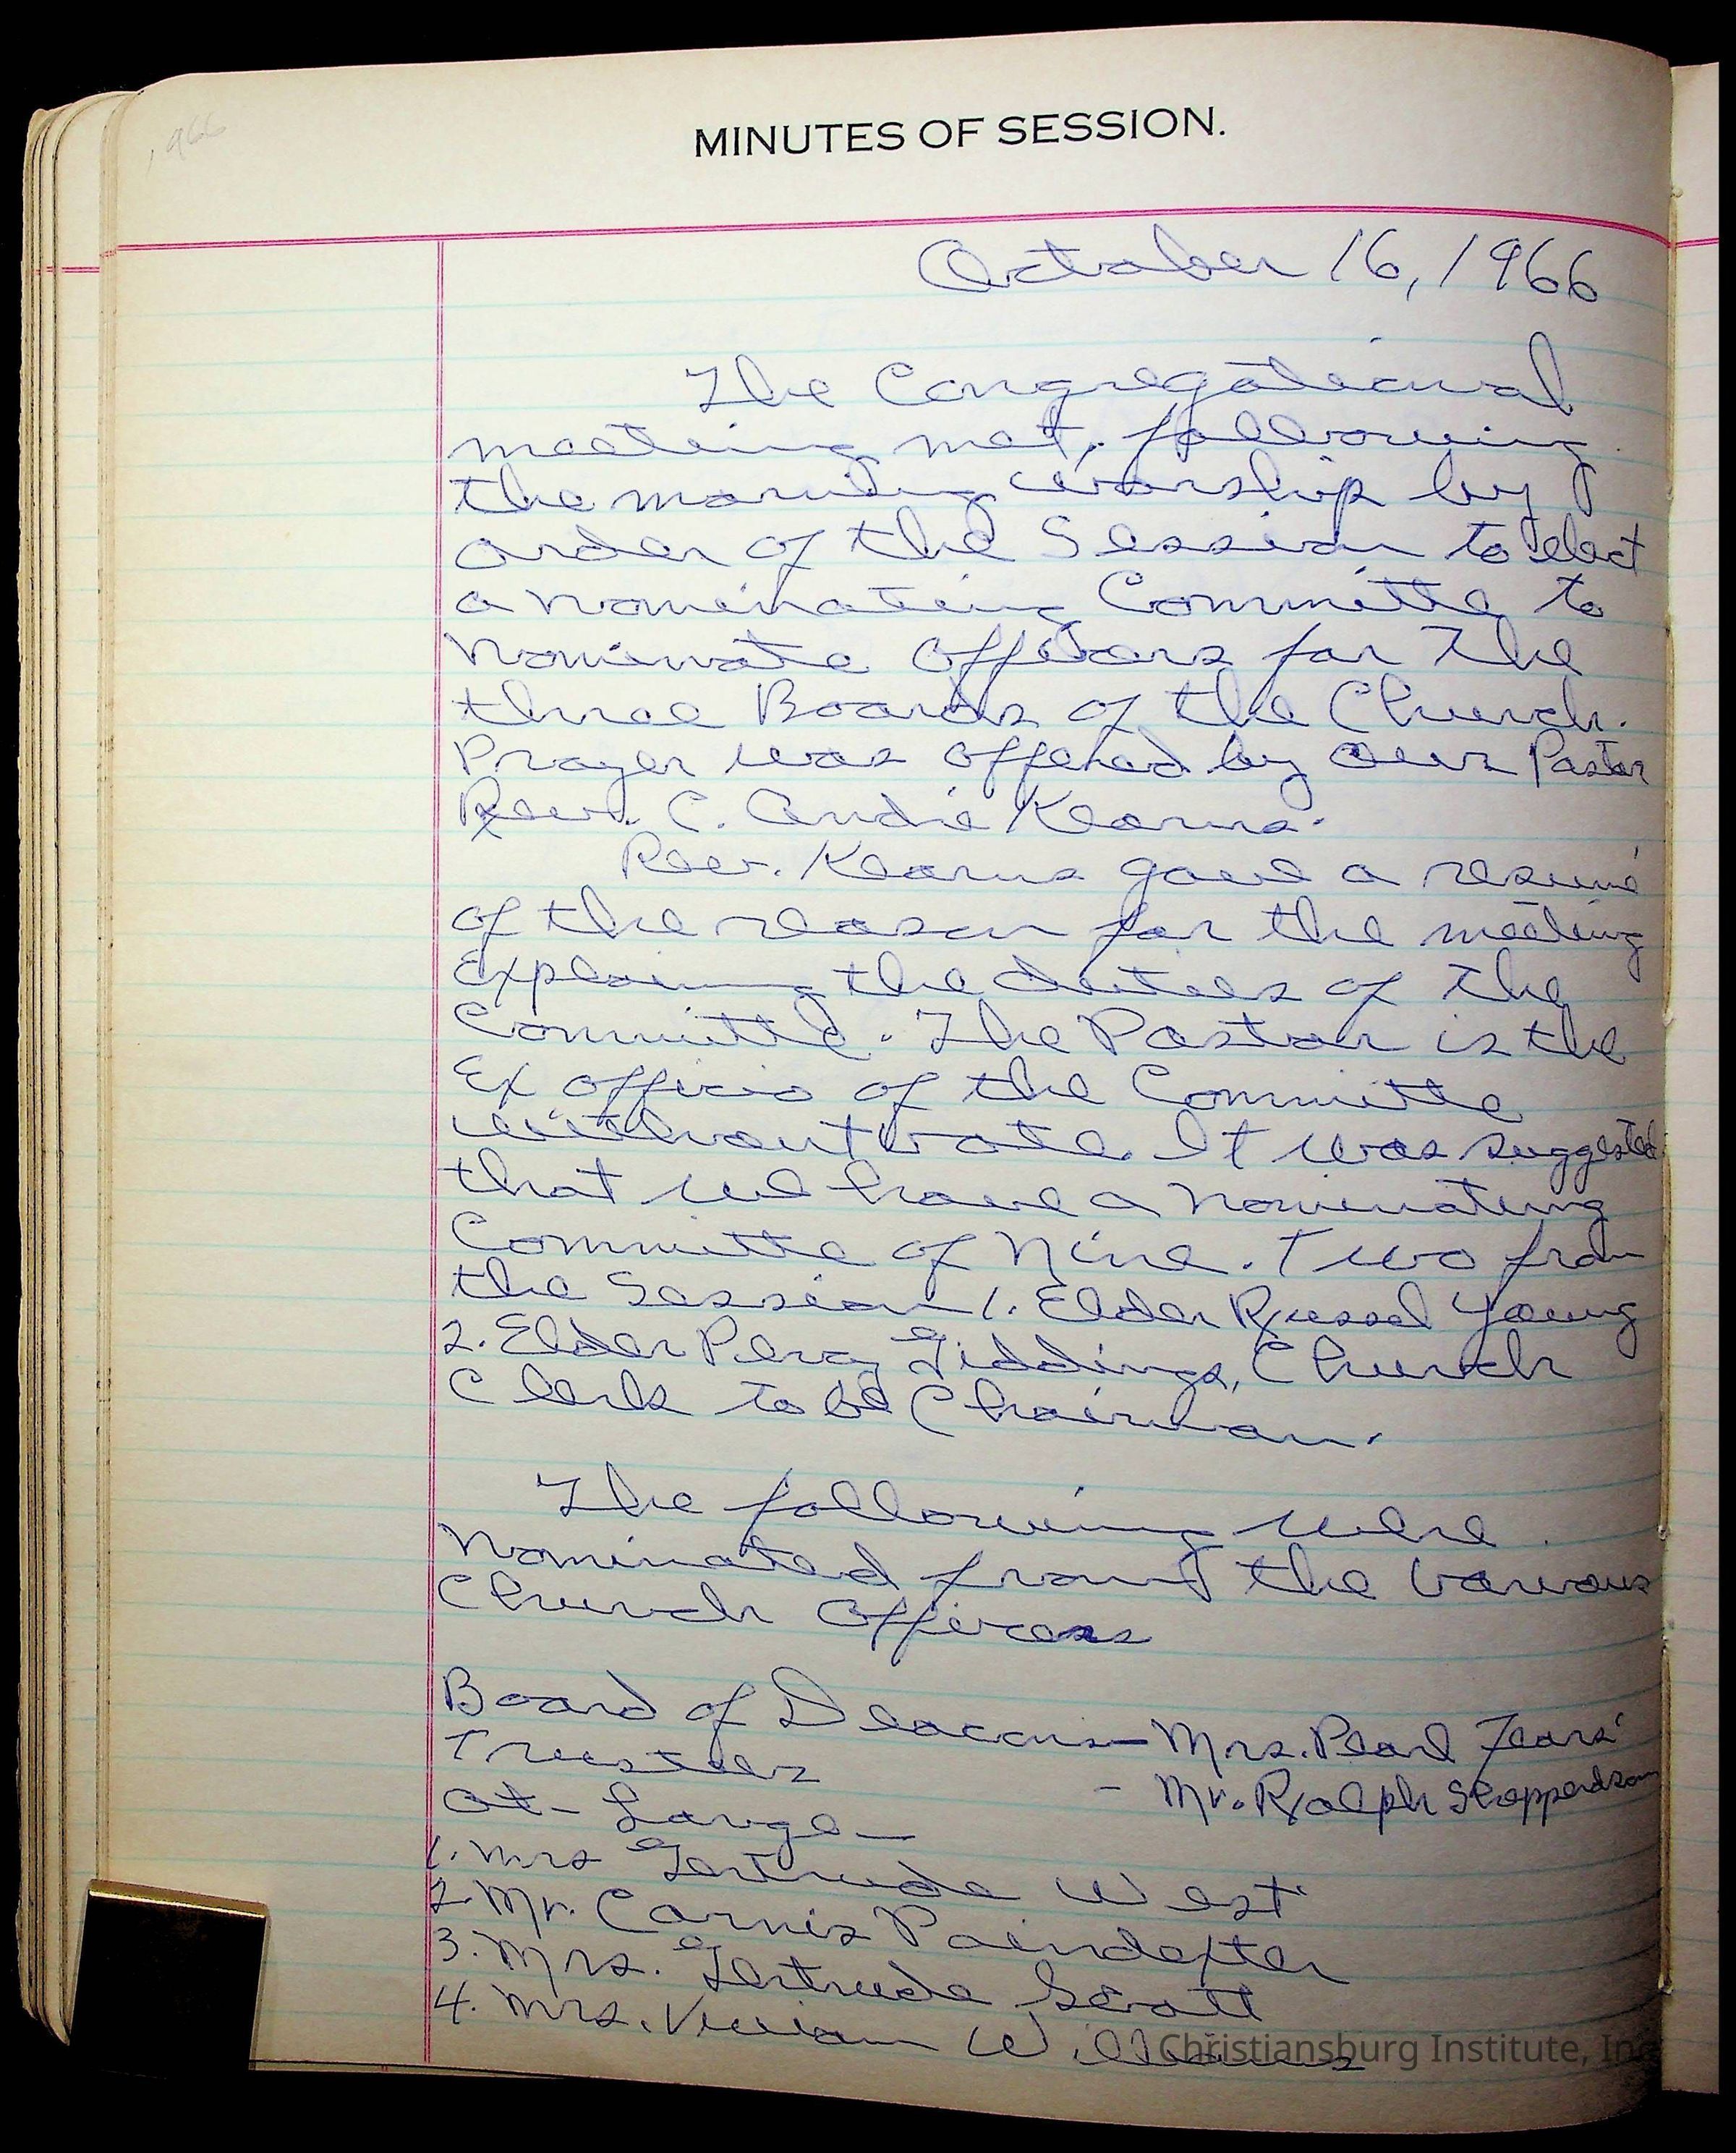 1966
MINUTES OF SESSION.
October 16, 1966
The Congregational
meeting met, following
the morning worship by
order of the Session to elect
a nominating Committe to
Nominate Officers for The
three Boards of the Church.
Prayer was offered by our Pastor
Rev. C. Andie Kearns.
Rev. Kearns gave a resumé
of the reason for the meeting
Explaining the duties of the
Committe. The Pastor is the
Ex officio of the Committe
without vote. It was suggested
that we have a nominating
Committe of Nine. Two from
the Session 1. Elder Russel Young
2. Elder Percy Giddings, Church
Clerk to be Chairman.
The following were
Nominated from the various
Church Officers
Board of Deacons — Mrs. Pearl Fears
Trustees - Mr. Ralph Sheppardson
at - Large —
1. Mrs Gertrude West
2 Mr. Carnis Poindexter
3. Mrs. Gertrude Scott
4. Mrs. Vivian Williams
Christiansburg Institute, Inc